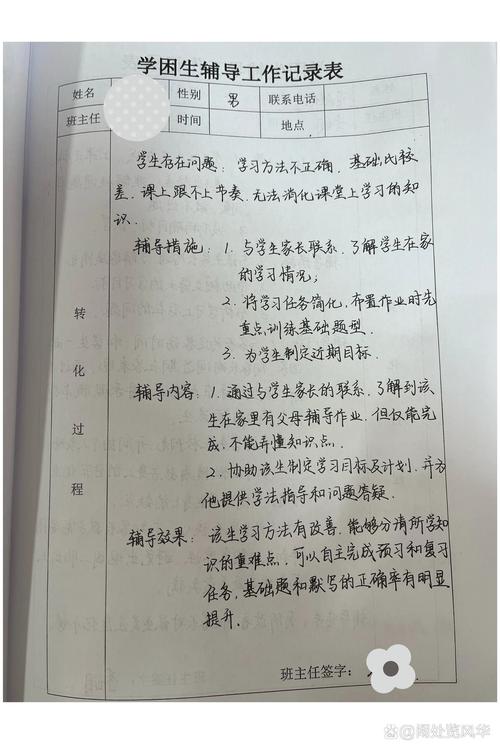 学困生辅导工作记录表
姓名 性别 男 联系电话
班主任 时间 地点
学生存在问题：学习方法不正确，基础比较
差，课上跟不上节奏，无法消化课堂上学习的知
识．
辅导措施：1. 与学生家长联系，了解学生在家
的学习情况；
2. 将学习任务简化，布置作业时先
重点训练基础题型．
3. 为学生制定近期目标．
转化过程
辅导内容：1. 通过与学生家长的联系，了解到该
生在家里有父母辅导作业，但仅能完
成，不能弄懂知识点．
2. 协助该生制定学习目标及计划，并为
他提供学法指导和问题答疑．
辅导效果：该生学习方法有改善，能够分清所学知
识的重难点，可以自主完成预习和复习
任务，基础题和默写的正确率有明显
提升．
班主任签字：
@闹处览风华